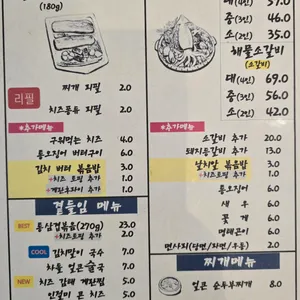 (180g)
리필
찌개 리필 2.0
치즈퐁듀 리필 2.0
*추가메뉴
구워먹는 치즈 4.0
통오징어 버터구이 6.0
김치 버터 볶음밥 3.0
+치즈 토핑 추가 1.0
+계란후라이 추가 1.0
곁들임 메뉴
BEST 통삼겹볶음(270g) 23.0
+치즈토핑 추가 2.0
COOL 김치말이 국수 7.0
차돌 얼큰술국 7.0
BEST 치즈 감태 계란찜 5.0
인절미 콘 치즈 5.0
대(4인) 57.0
중(3인) 46.0
소(2인) 35.0
해물소갈비
(소갈비)
대(4인) 69.0
중(3인) 56.0
소(2인) 42.0
*추가메뉴
소갈비 추가 20.0
돼지등갈비 추가 13.0
날치알 볶음밥 3.0
+치즈토핑 추가 1.0
통오징어 6.0
새 우 6.0
꽃 게 6.0
명태곤이 6.0
면사리(당면/쫄면/우동) 2.0
찌개메뉴
얼큰 순두부찌개 8.0